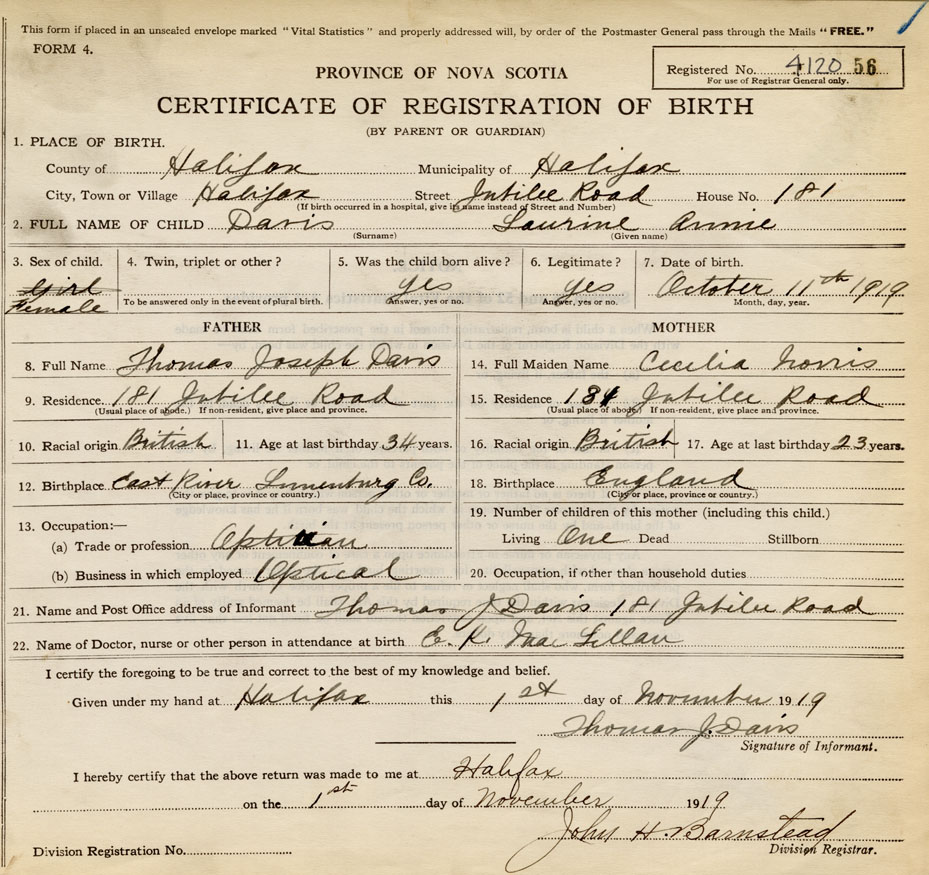 This form if placed in an unsealed envelope marked "Vital Statistics" and properly addressed will, by order of the Postmaster General pass through the Mails "FREE."
FORM 4.
Registered No. 4120 56
For use of Registrar General only.
PROVINCE OF NOVA SCOTIA
CERTIFICATE OF REGISTRATION OF BIRTH
(BY PARENT OR GUARDIAN)
1. PLACE OF BIRTH.
County of Halifax Municipality of Halifax
City, Town or Village Halifax Street Jubilee Road House No. 181
(If birth occurred in a hospital, give its name instead of Street and Number)
2. FULL NAME OF CHILD Davis Laurine Annie
(Surname) (Given name)
3. Sex of child. 4. Twin, triplet or other? 5. Was the child born alive? 6. Legitimate? 7. Date of birth.
Girl yes yes October 11th 1919
Female To be answered only in the event of plural birth. Answer, yes or no. Answer, yes or no. Month, day, year.
FATHER MOTHER
8. Full Name Thomas Joseph Davis 14. Full Maiden Name Cecilia Norris
9. Residence 181 Jubilee Road 15. Residence Jubilee Road
(Usual place of abode.) If non-resident, give place and province. (Usual place of abode) If non-resident, give place and province.
10. Racial origin British 11. Age at last birthday 34 years. 16. Racial origin British 17. Age at last birthday 23 years.
12. Birthplace East River Lunenburg Co. 18. Birthplace England
(City or place, province or country.) (City or place, province or country.)
13. Occupation:— 19. Number of children of this mother (including this child.)
(a) Trade or profession Optician Living One Dead Stillborn
(b) Business in which employed Optical 20. Occupation, if other than household duties
21. Name and Post Office address of Informant Thomas J. Davis 181 Jubilee Road
22. Name of Doctor, nurse or other person in attendance at birth E. K. MacLellan
I certify the foregoing to be true and correct to the best of my knowledge and belief.
Given under my hand at Halifax this 1st day of November 1919
Thomas J. Davis
Signature of Informant.
I hereby certify that the above return was made to me at Halifax
on the 1st day of November 1919
John H. Barnstead
Division Registrar.
Division Registration No.